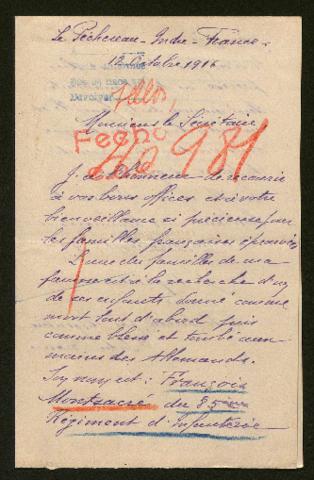 Le Pêchereau - Indre - France -
12 Octobre 1916
Monsieur le Secrétaire
J'ai l'honneur de recourir
à vos bons offices et à votre
bienveillance si précieuse pour
les familles françaises éprouvées
L'une des familles de ma
paroisse est à la recherche d'un
de ses enfants, donné comme
mort tout d'abord puis
comme blessé et tombé aux
mains des Allemands.
Son nom est : François
Montsacré du 85ième
Régiment d'Infanterie